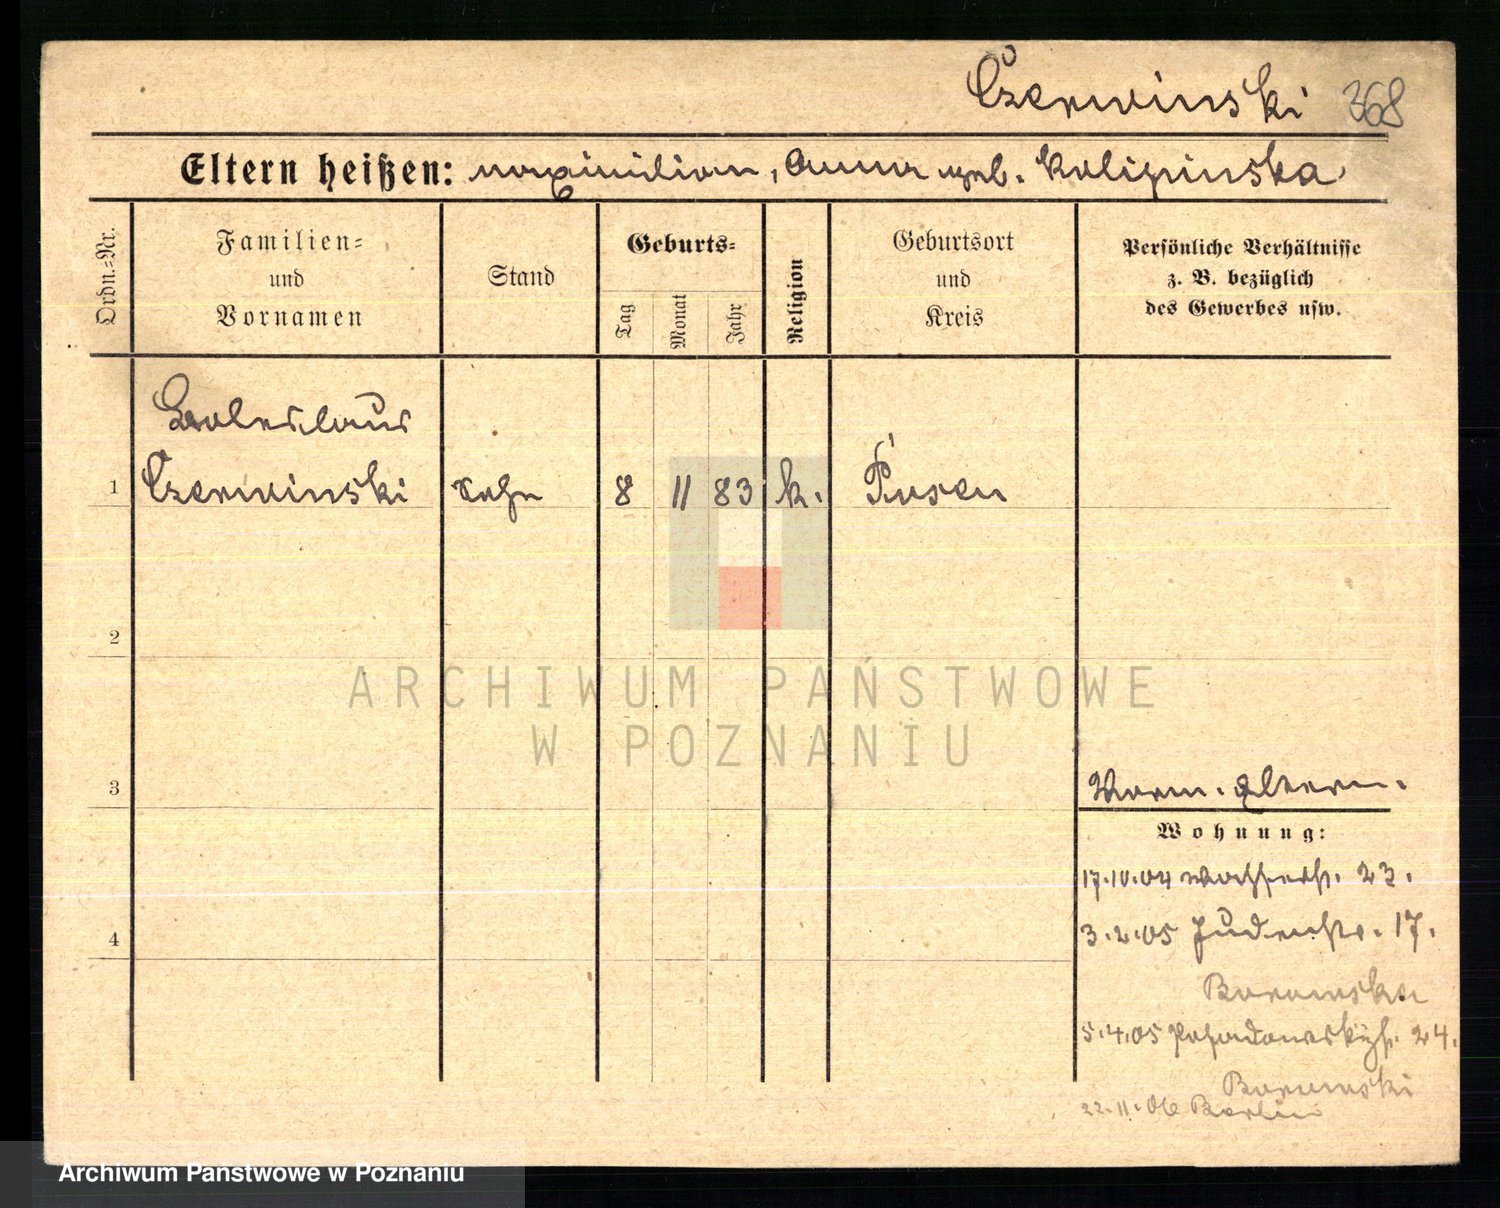 Czerwinski 368
Eltern heißen: Maximilian, Anna geb. Kolipinska
Ordn.-Nr.
Familien-
und
Vornamen
Stand
Geburts-
Tag
Monat
Jahr
Religion
Geburtsort
und
Kreis
Persönliche Verhältnisse
z. B. bezüglich
des Gewerbes usw.
Boleslaus
1 Czerwinski Sohn 8 11 83 k. Posen
2
ARCHIWUM PAŃSTWOWE
W POZNANIU
3
Vorm. Eltern.
Wohnung:
17.10.04 Wasserstr. 23.
4
3.2.05 Judenstr. 17.
5.4.05 24.
22.11.06 Berlin
Archiwum Państwowe w Poznaniu